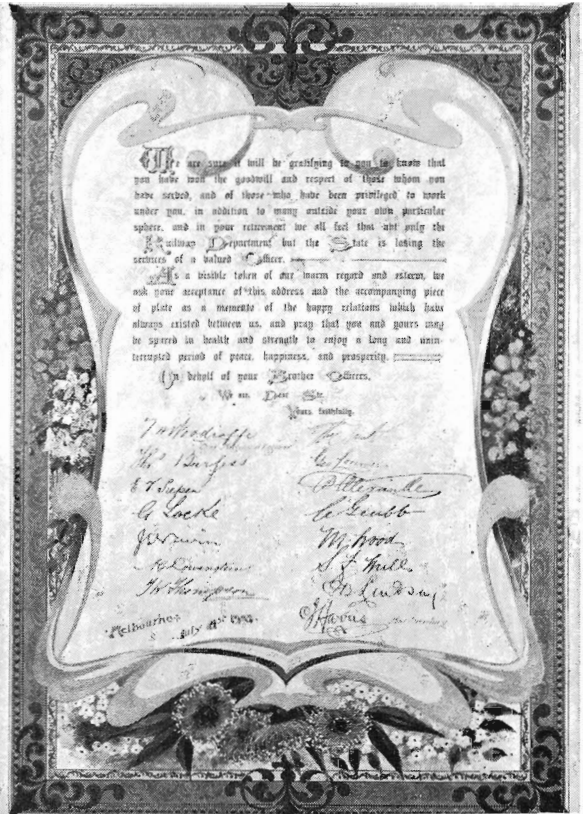 We are sure it will be gratifying to you to know that
you have won the goodwill and respect of those whom you
have served, and of those who have been privileged to work
under you, in addition to many outside your own particular
sphere, and in your retirement we all feel that not only the
Railway Department but the State is losing the
services of a valued Officer.
As a visible token of our warm regard and esteem, we
ask your acceptance of this address and the accompanying piece
of plate as a memento of the happy relations which have
always existed between us, and pray that you and yours may
be spared in health and strength to enjoy a long and unin-
terrupted period of peace, happiness, and prosperity.
On behalf of your Brother Officers,
We are, Dear Sir,
Yours faithfully,
T H Woodroffe
Thos Burgess
C Locke
M. Wood
T W Thompson
Lindsay
Melbourne
July